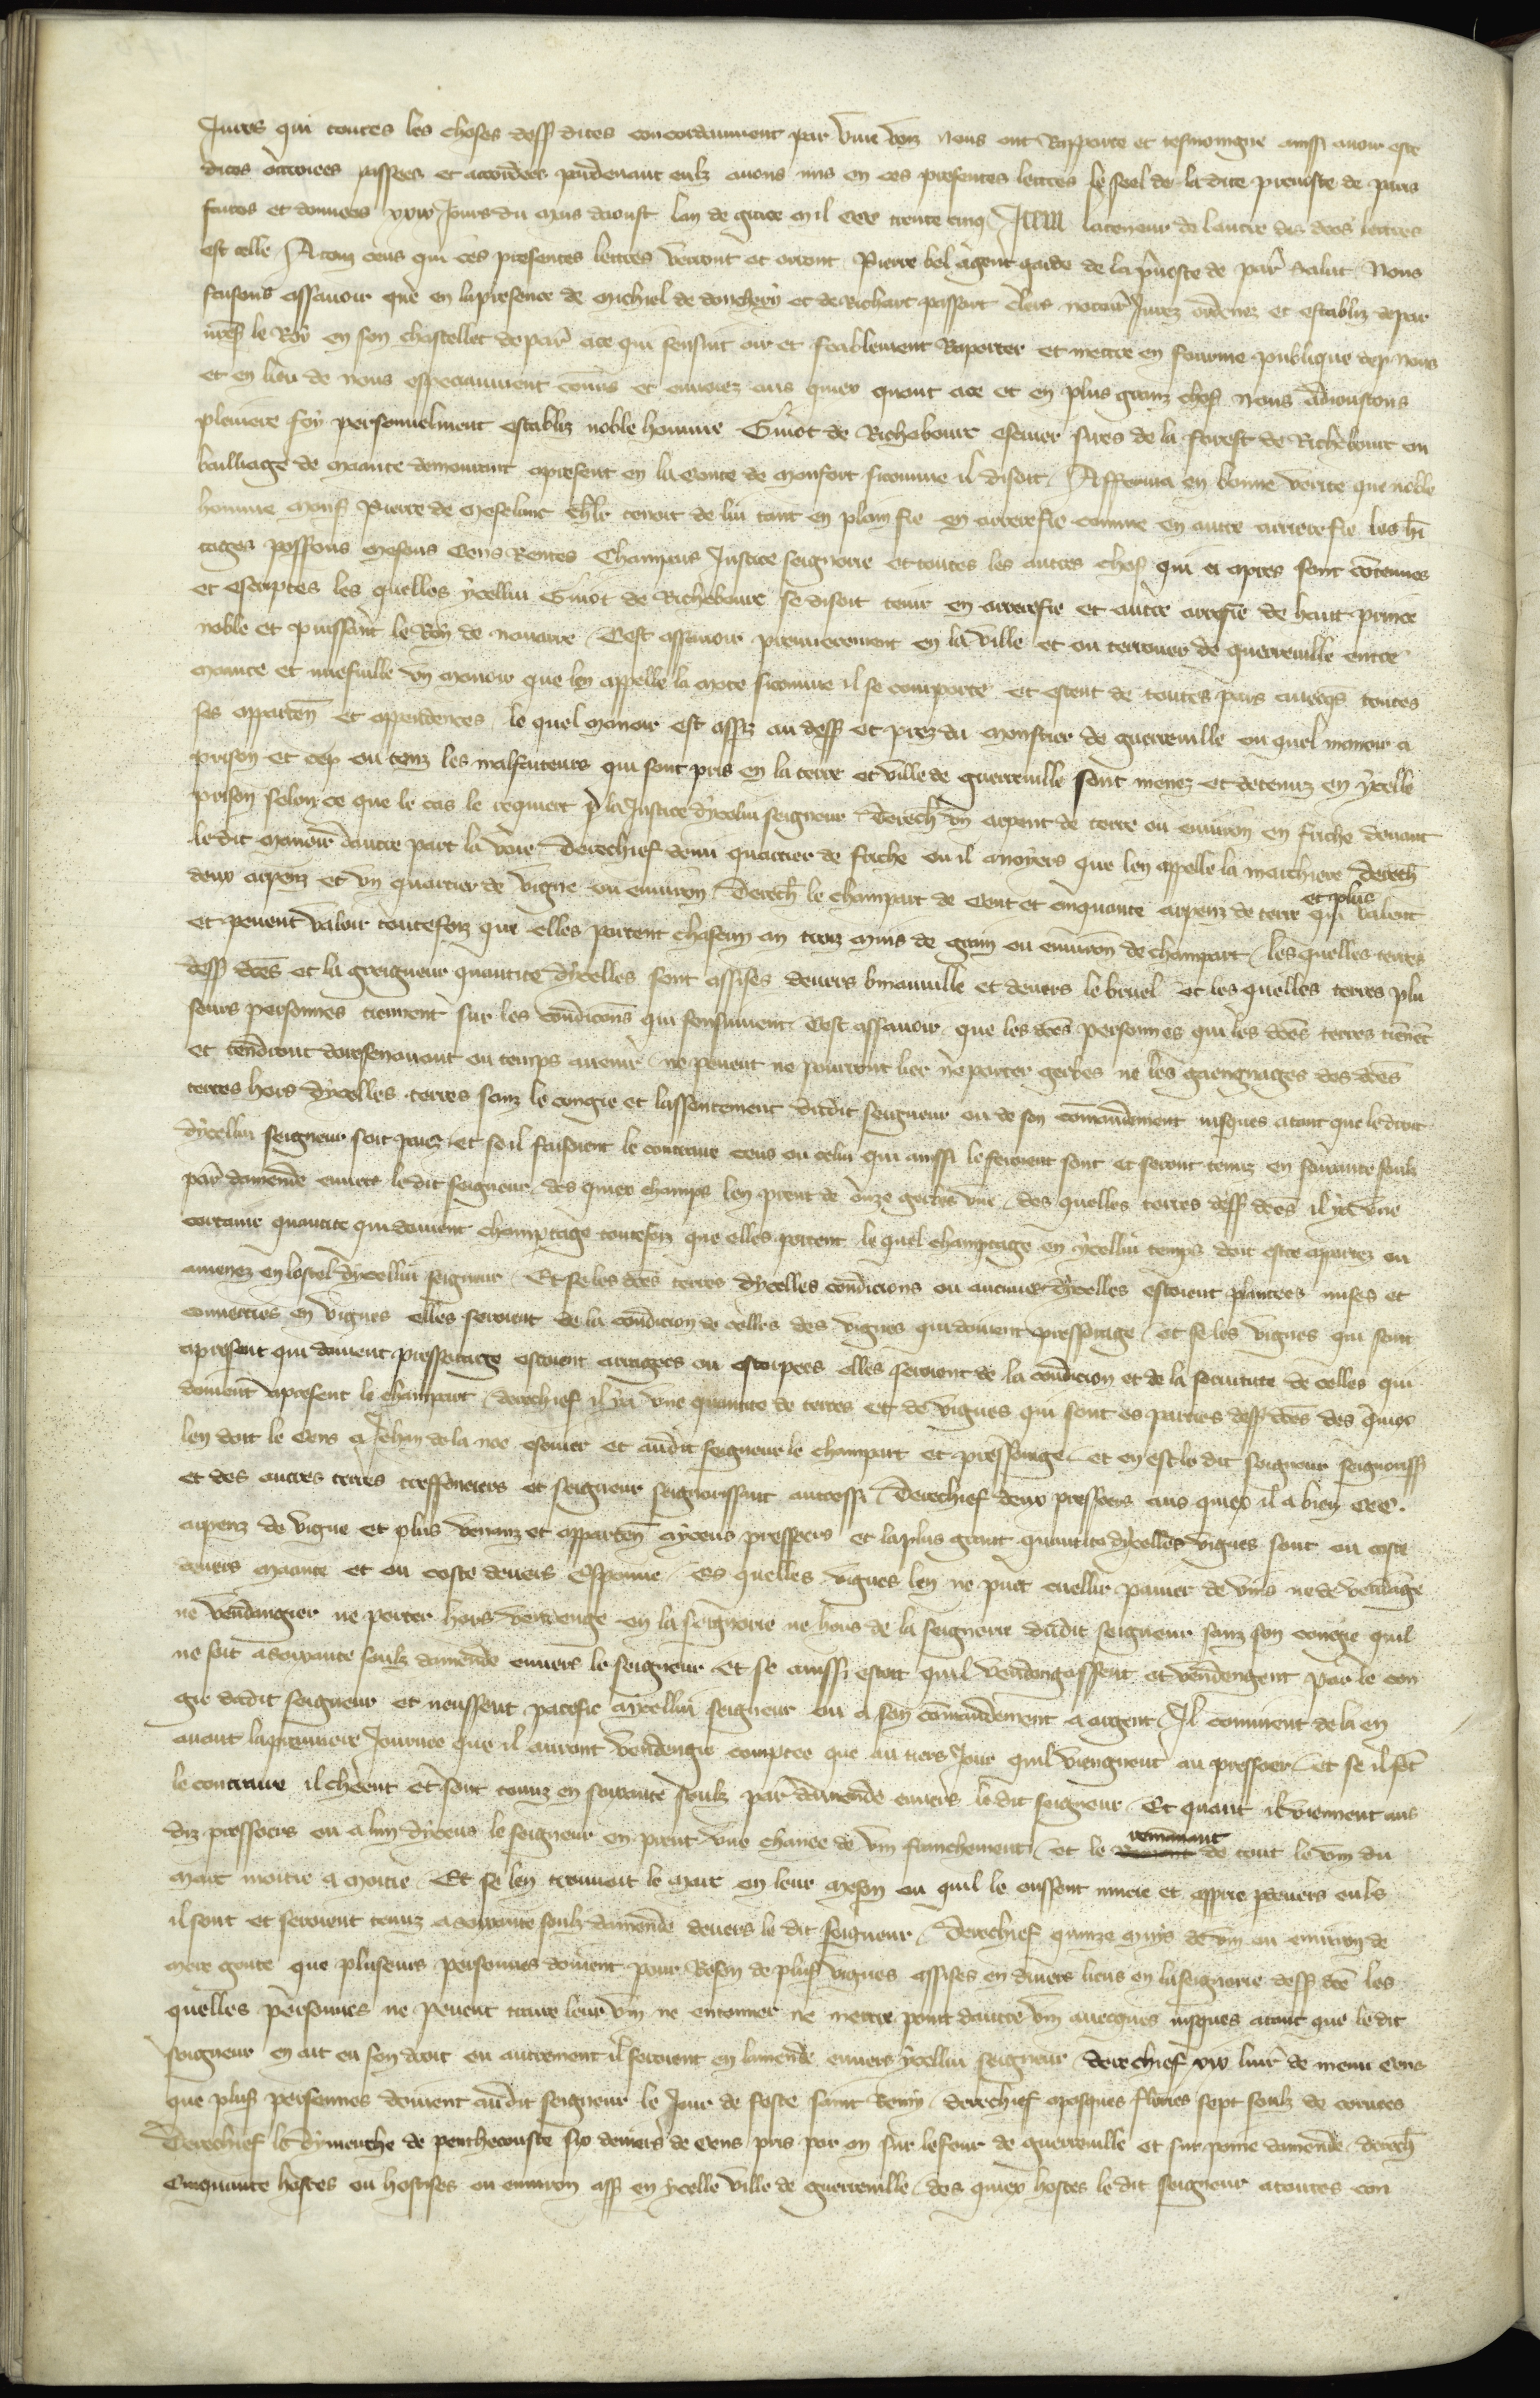 Jurez qui toutes les choses dess dites concordamment par vive voiz nous ont Rapporte et tesmoingne ainsi avoir este
dites octroiees passees et accordees pardevant eulz avons mis en ces presentes lettres le seel de la dite prevoste de paris
faites et donnees Jours du mois daoust lan de grace mil ccc trente cinq Item la teneur de lautre des dces lettres
est telle A touz ceus qui ces presentes lettres verront et orront Pierre bel agent garde de la pvoste de par salut Nous
faisons assavoir que en la presence de Michiel de donchery et de Richart passart clers notair Jurez ordenez et establiz depar
nres le Roy en son chastellet de par ace qui sensuit oir et feablement Raporter et mettre en fourme publique dep nous
et en lieu de nous especiaument comis et envoiez aus quiex quant ace et en plus granz chos nous adjoustons
pleniere foy personnelment establiz noble homme Guiot de Richebourc escuier sires de la forest de Richebourc ou
bailliage de Mante demourant apresent en la conte de Monfort sicomme il disoit Afferma en bonne verite que noble
homme Mons Pierre de Meselanc chlr tenoit de lui tant en plain fie en arrerefie comme en autre arrierefie les hi
tages possons mesons cens Rentes Champars Justice seignorie et toutes les autres chos qui ci apres sont contenues
et escriptes les quelles ycellui Guiot de Richebourc se disoit tenir en arrerefie et autre arrefie de haut prince
noble et puissant le Roy de navarre Cest assavoir premierement en la ville et ou terrouer de guerreville entre
Mante et nuefville un manoir que len appelle la Mote sicomme il se comporte et estent de toutes pars avecqs toutes
ses apparten et appendences le quel manoir est assiz au dess et prez du monstier de guerreville ou quel manoir a
prison et cep ou touz les malfaiteurs qui sont pris en la terre et ville de guerreville sont menez et detenuz en ycelle
prison selon ce que le cas le requiert p la Justice dycelui seigneur Derech un arpent de terre ou environ en friche devant
le dit manoir dautre part la voie Derechief demi quartier de friche ou il a noyers que len appelle la marchiere Derech
deux arpenz et un quartier de vigne ou environ Derech le champart de Cent et cinquante arpenz de terre et plus qui valent
et pevent valoir toutefoiz que elles portent chascun an troiz muis de grain ou environ de champart les quelles terres
dess dces et la greigneur quantite dycelles sont assises devers binanville et devers le bruel et les quelles terres plu
seurs personnes tiennent sur les condicons qui sensuivent Cest assavoir que les dces personnes qui les dces terres tienet
et tendront doresenavant ou temps avenir ne pevent ne pourront lier ne porter gerbes ne les gaengnages des dces
terres hors dycelles terres sanz le congie et lassentement dudit seigneur ou de son comandement jusques atant que le droit
dycellui seigneur soit paiez et se il faisoient le contraire ceus ou celui qui ainssi le feroient sont et seront tenuz en soixante soulz
par damende envers le dit seigneur des quiex champs len prent de onze gerbes une des quelles terres dess dces il ya une
certaine quantite qui doivent champtage toutefoiz que elles portent le quel champtage en ycellui temps doit estre aportez ou
amenez en lostel dycellui seigneur Et se les dces terres dycelles condicions ou aucunes dycelles estoient plantees mises et
converties en vignes elles seroient de la condicion de celles des vignes qui doivent pressorage et se les vignes qui sont
apresent qui doivent pressorage estoient arragees ou estrepees elles seroient de la condicion et de la servitute de celles qui
doivent apresent le champart derechief il ya une quantite de terres et de vignes qui sont es parties dess dces des quiex
len doit le cens a Jehan de la noe escuier et audit seigneur le champart et pressorage et en est le dit seigneur seignoriss
et des autres terres tressonciers et seigneur seignorissant autressi Derechief deux pressoers aus quiex il a bien ccc
arpenz de vigne et plus venanz et apparten aycens pressoers et la plus grant quantite dycelles vignes sont ou coste
devers Mante et ou coste devers Esponne Es quelles vignes len ne puet cuellir panier de vins ne de vendage
ne vendangier ne porter hors vendenge en la seignorie ne hors de la seignorie dudit seigneur sanz son congie quil
ne soit asoixante soulz damende envers le seigneur Et se ainssi estoit quil vendengassent et vendengent par le con
gie dudit seigneur et neussent pacefie aycellui seigneur ou a son comandement a argent Il convient de la en
avant la premiere Journee que il auront vendengie comptee que au tiers Jour quil viengnent au pressoer et se il fet
le contraire il cheent et sont tenuz en soixante soulz par damende envers le dit seigneur Et quant il viennent aus
diz pressoers ou a lun dyceus le seigneur en prent une chance de vin franchement et le remanant de tout le vin du
marc moitie a moitie Et se len trouvoit le marc en leur meson ou quil le eussent miere et aspire pdevers euls
il sont et seroient tenuz asoixante soulz damende devers le dit seigneur Derechief quinze muys de vin ou environ de
mere goute que pluseurs personnes doivent pour Reson de plus vignes assises en divers lieus en la seignorie dess dce les
quelles personnes ne pevent traire leur vin ne entonner ne mettre point dautre vin avecques jusques atant que le dit
seigneur en ait eu son droit ou autrement il seroient en lamende envers ycellui seigneur derechief xv livr de menu cens
que plus personnes doivent audit seigneur le Jour de feste saint Remy derechief apasques flories sept soulz de corvees
Derechief le dymenche de penthecouste six deniers de cens pris par an sur le four de guerreville et sur poine damende derech
Cinquante hostes ou hostises ou environ ass en ycelle ville de guerreville des quiex hostes le dit seigneur atoutes con